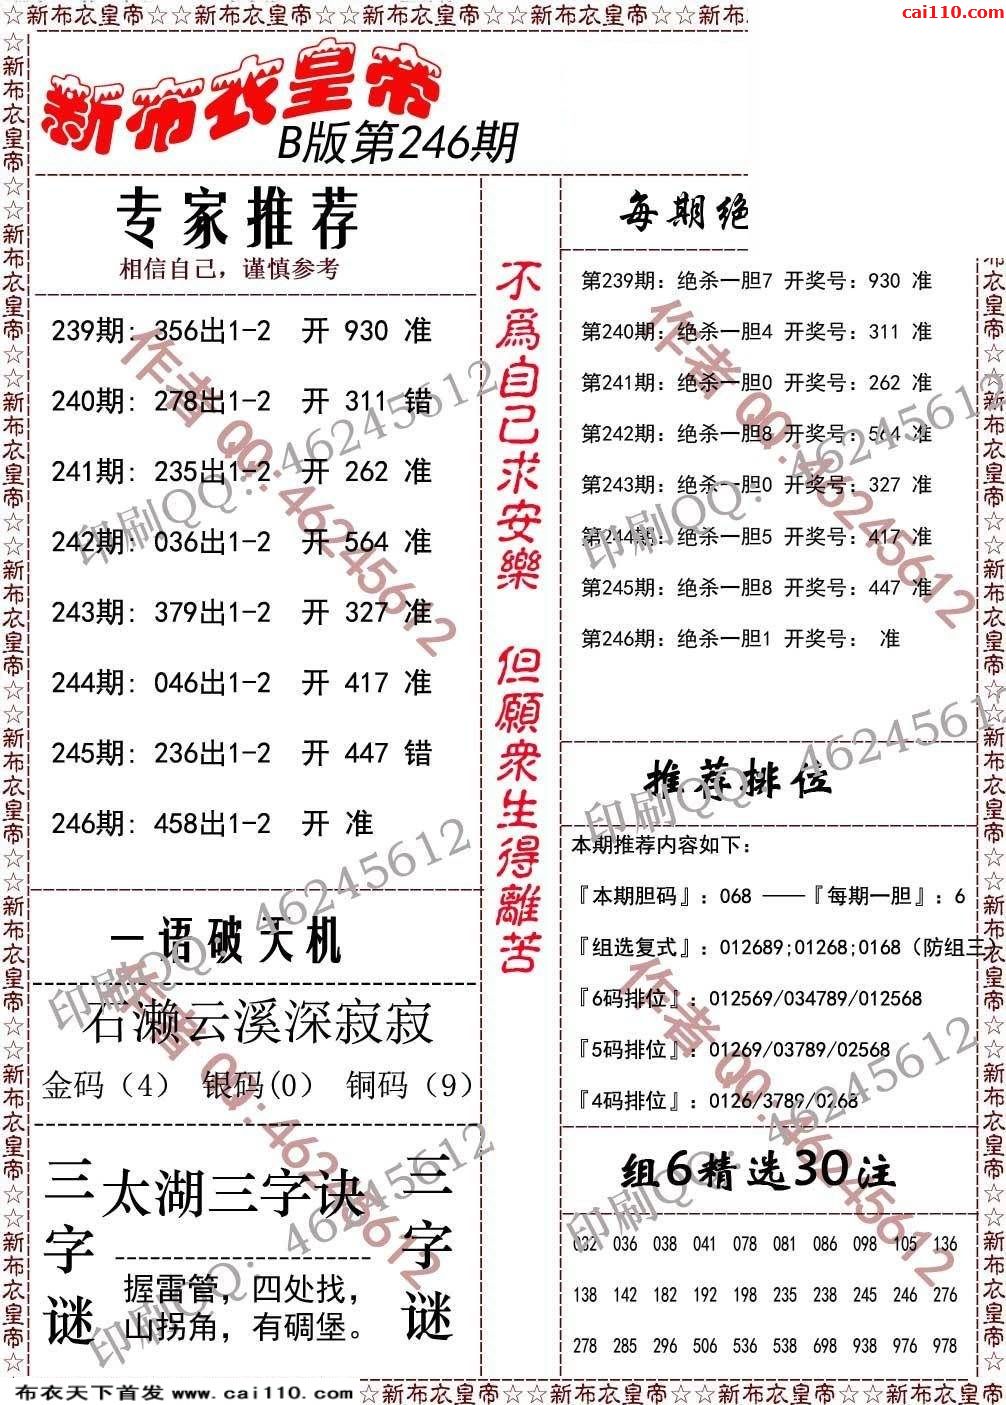 ☆新布衣皇帝☆☆新布衣皇帝☆☆新布衣皇帝☆☆新布衣皇帝☆☆新布
cai110.com
新布衣皇帝
B版第246期
专家推荐
相信自己，谨慎参考
239期: 356出1-2 开 930 准
240期: 278出1-2 开 311 错
241期: 235出1-2 开 262 准
242期: 036出1-2 开 564 准
243期: 379出1-2 开 327 准
244期: 046出1-2 开 417 准
245期: 236出1-2 开 447 错
246期: 458出1-2 开 准
一语破天机
石濑云溪深寂寂
金码（4） 银码(0） 铜码（9）
三字谜
太湖三字诀
握雷管，四处找，
山拐角，有碉堡。
三字谜
不為自己求安樂 但願衆生得離苦
每期绝
第239期: 绝杀一胆7 开奖号: 930 准
第240期: 绝杀一胆4 开奖号: 311 准
第241期: 绝杀一胆0 开奖号: 262 准
第242期: 绝杀一胆8 开奖号: 564 准
第243期: 绝杀一胆0 开奖号: 327 准
第244期: 绝杀一胆5 开奖号: 417 准
第245期: 绝杀一胆8 开奖号: 447 准
第246期: 绝杀一胆1 开奖号: 准
推荐排位
本期推荐内容如下:
『本期胆码』: 068 ——『每期一胆』: 6
『组选复式』: 012689;01268;0168（防组三）
『6码排位』: 012569/034789/012568
『5码排位』: 01269/03789/02568
『4码排位』: 0126/3789/0268
组6精选30注
032 036 038 041 078 081 086 098 105 136
138 142 182 192 198 235 238 245 246 276
278 285 296 506 536 538 698 938 976 978
作者 QQ:46245612
印刷QQ: 46245612
作者 QQ:46245612
印刷QQ: 46245612
印刷QQ: 46245612
作者 QQ:46245612
印刷QQ: 46245612
作者 QQ:46245612
印刷QQ: 46245612
印刷QQ: 46245612
布衣天下首发 www.cai110.com
☆新布衣皇帝☆☆新布衣皇帝☆☆新布衣皇帝☆☆新布衣皇帝☆